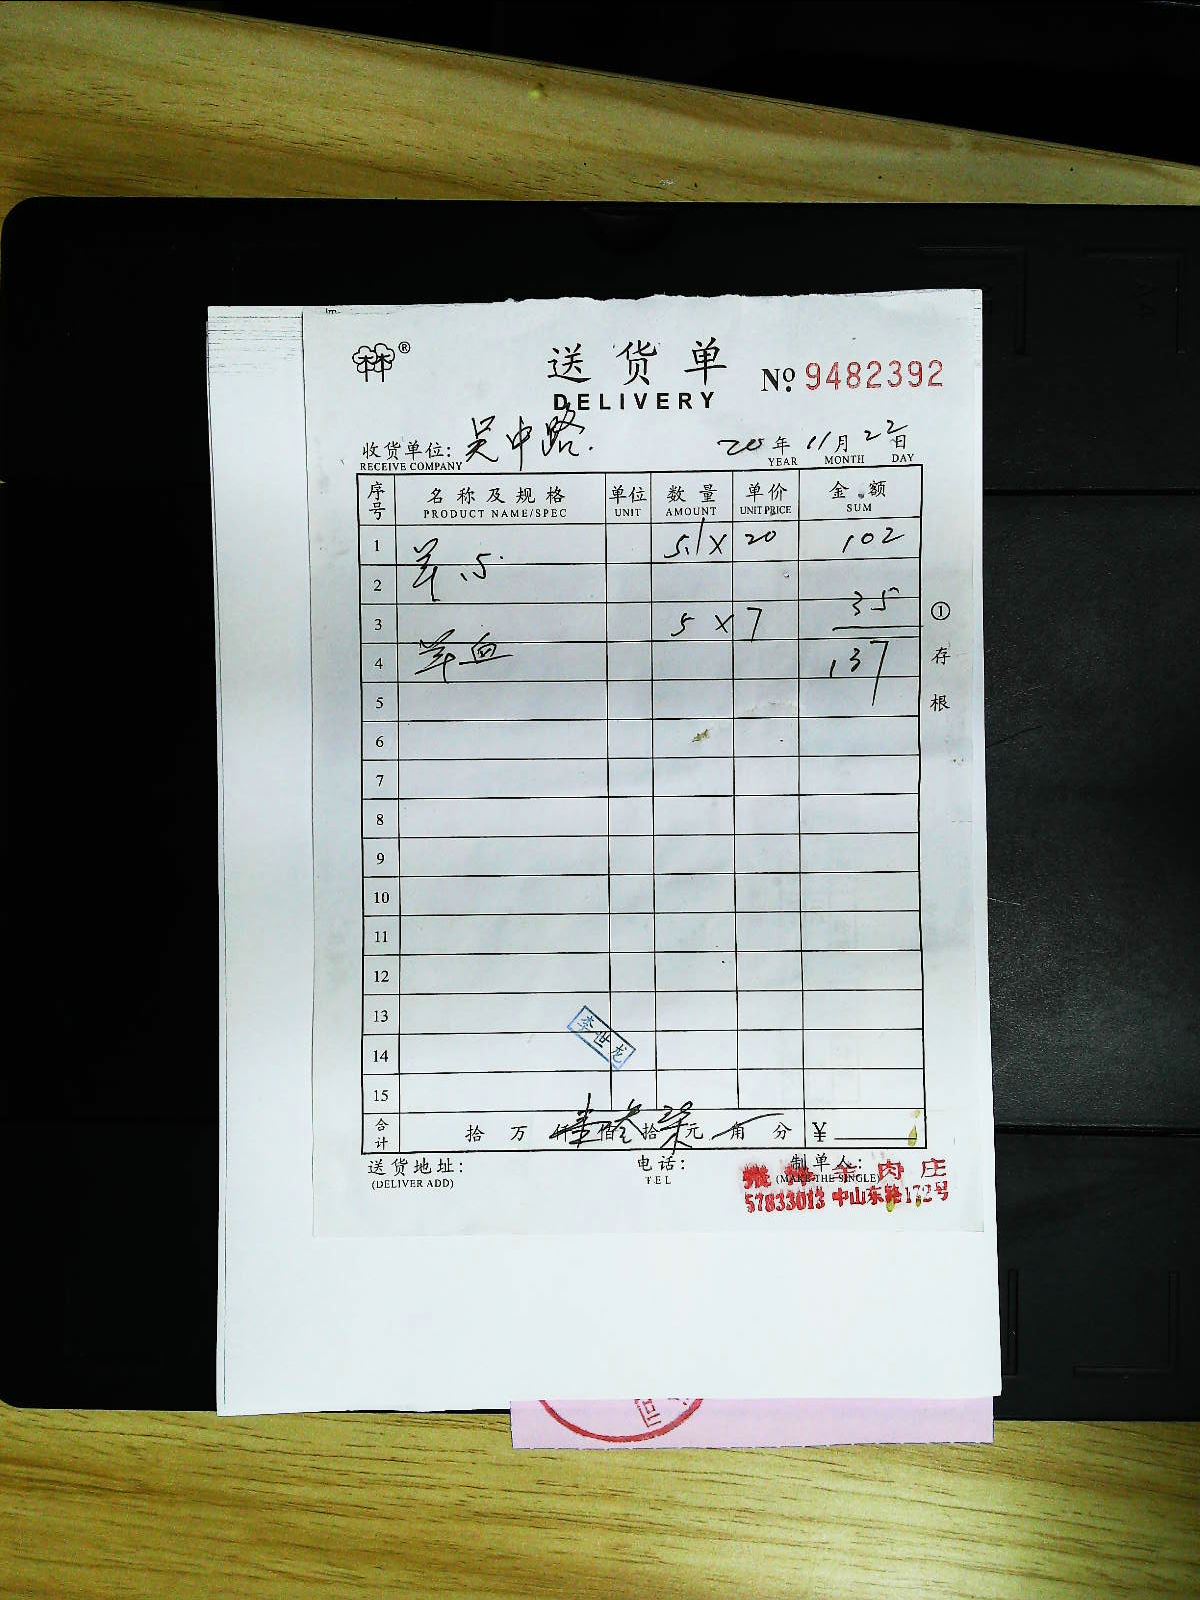 林林®
送货单
DELIVERY
№ 9482392
收货单位: 吴中路.
RECEIVE COMPANY
20年 11月 22日
YEAR MONTH DAY
序号 名称及规格 单位 数量 单价 金额
PRODUCT NAME/SPEC UNIT AMOUNT UNIT PRICE SUM
1 羊心 5.1 × 20 102
2
3 羊血 5 × 7 35
4 137
5
6
7
8
9
10
11
12
13
14
15
李世龙
合计 拾 万 仟 壹佰叁拾柒元 角 分 ¥
①存根
送货地址: 电话: 制单人:
(DELIVER ADD) TEL (MAKE THE SINGLE)
羊肉庄
57833013 中山东路172号
司